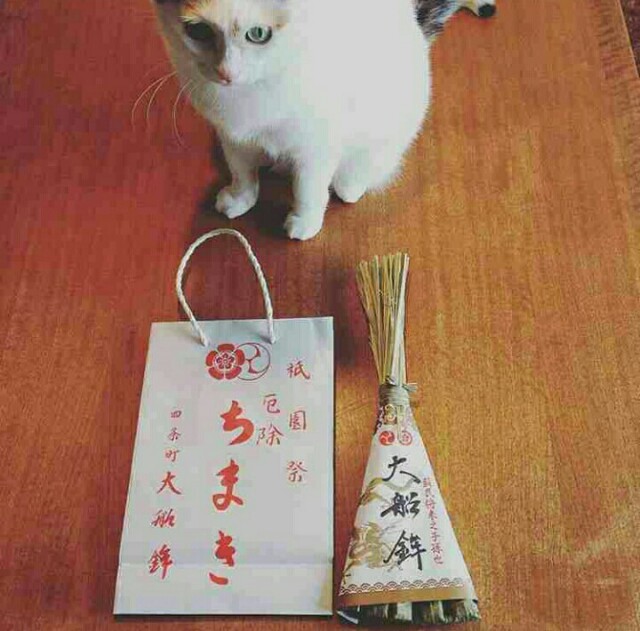 祇園祭
厄除
ちまき
四条町
大船鉾
大船鉾
蘇民将来之子孫也